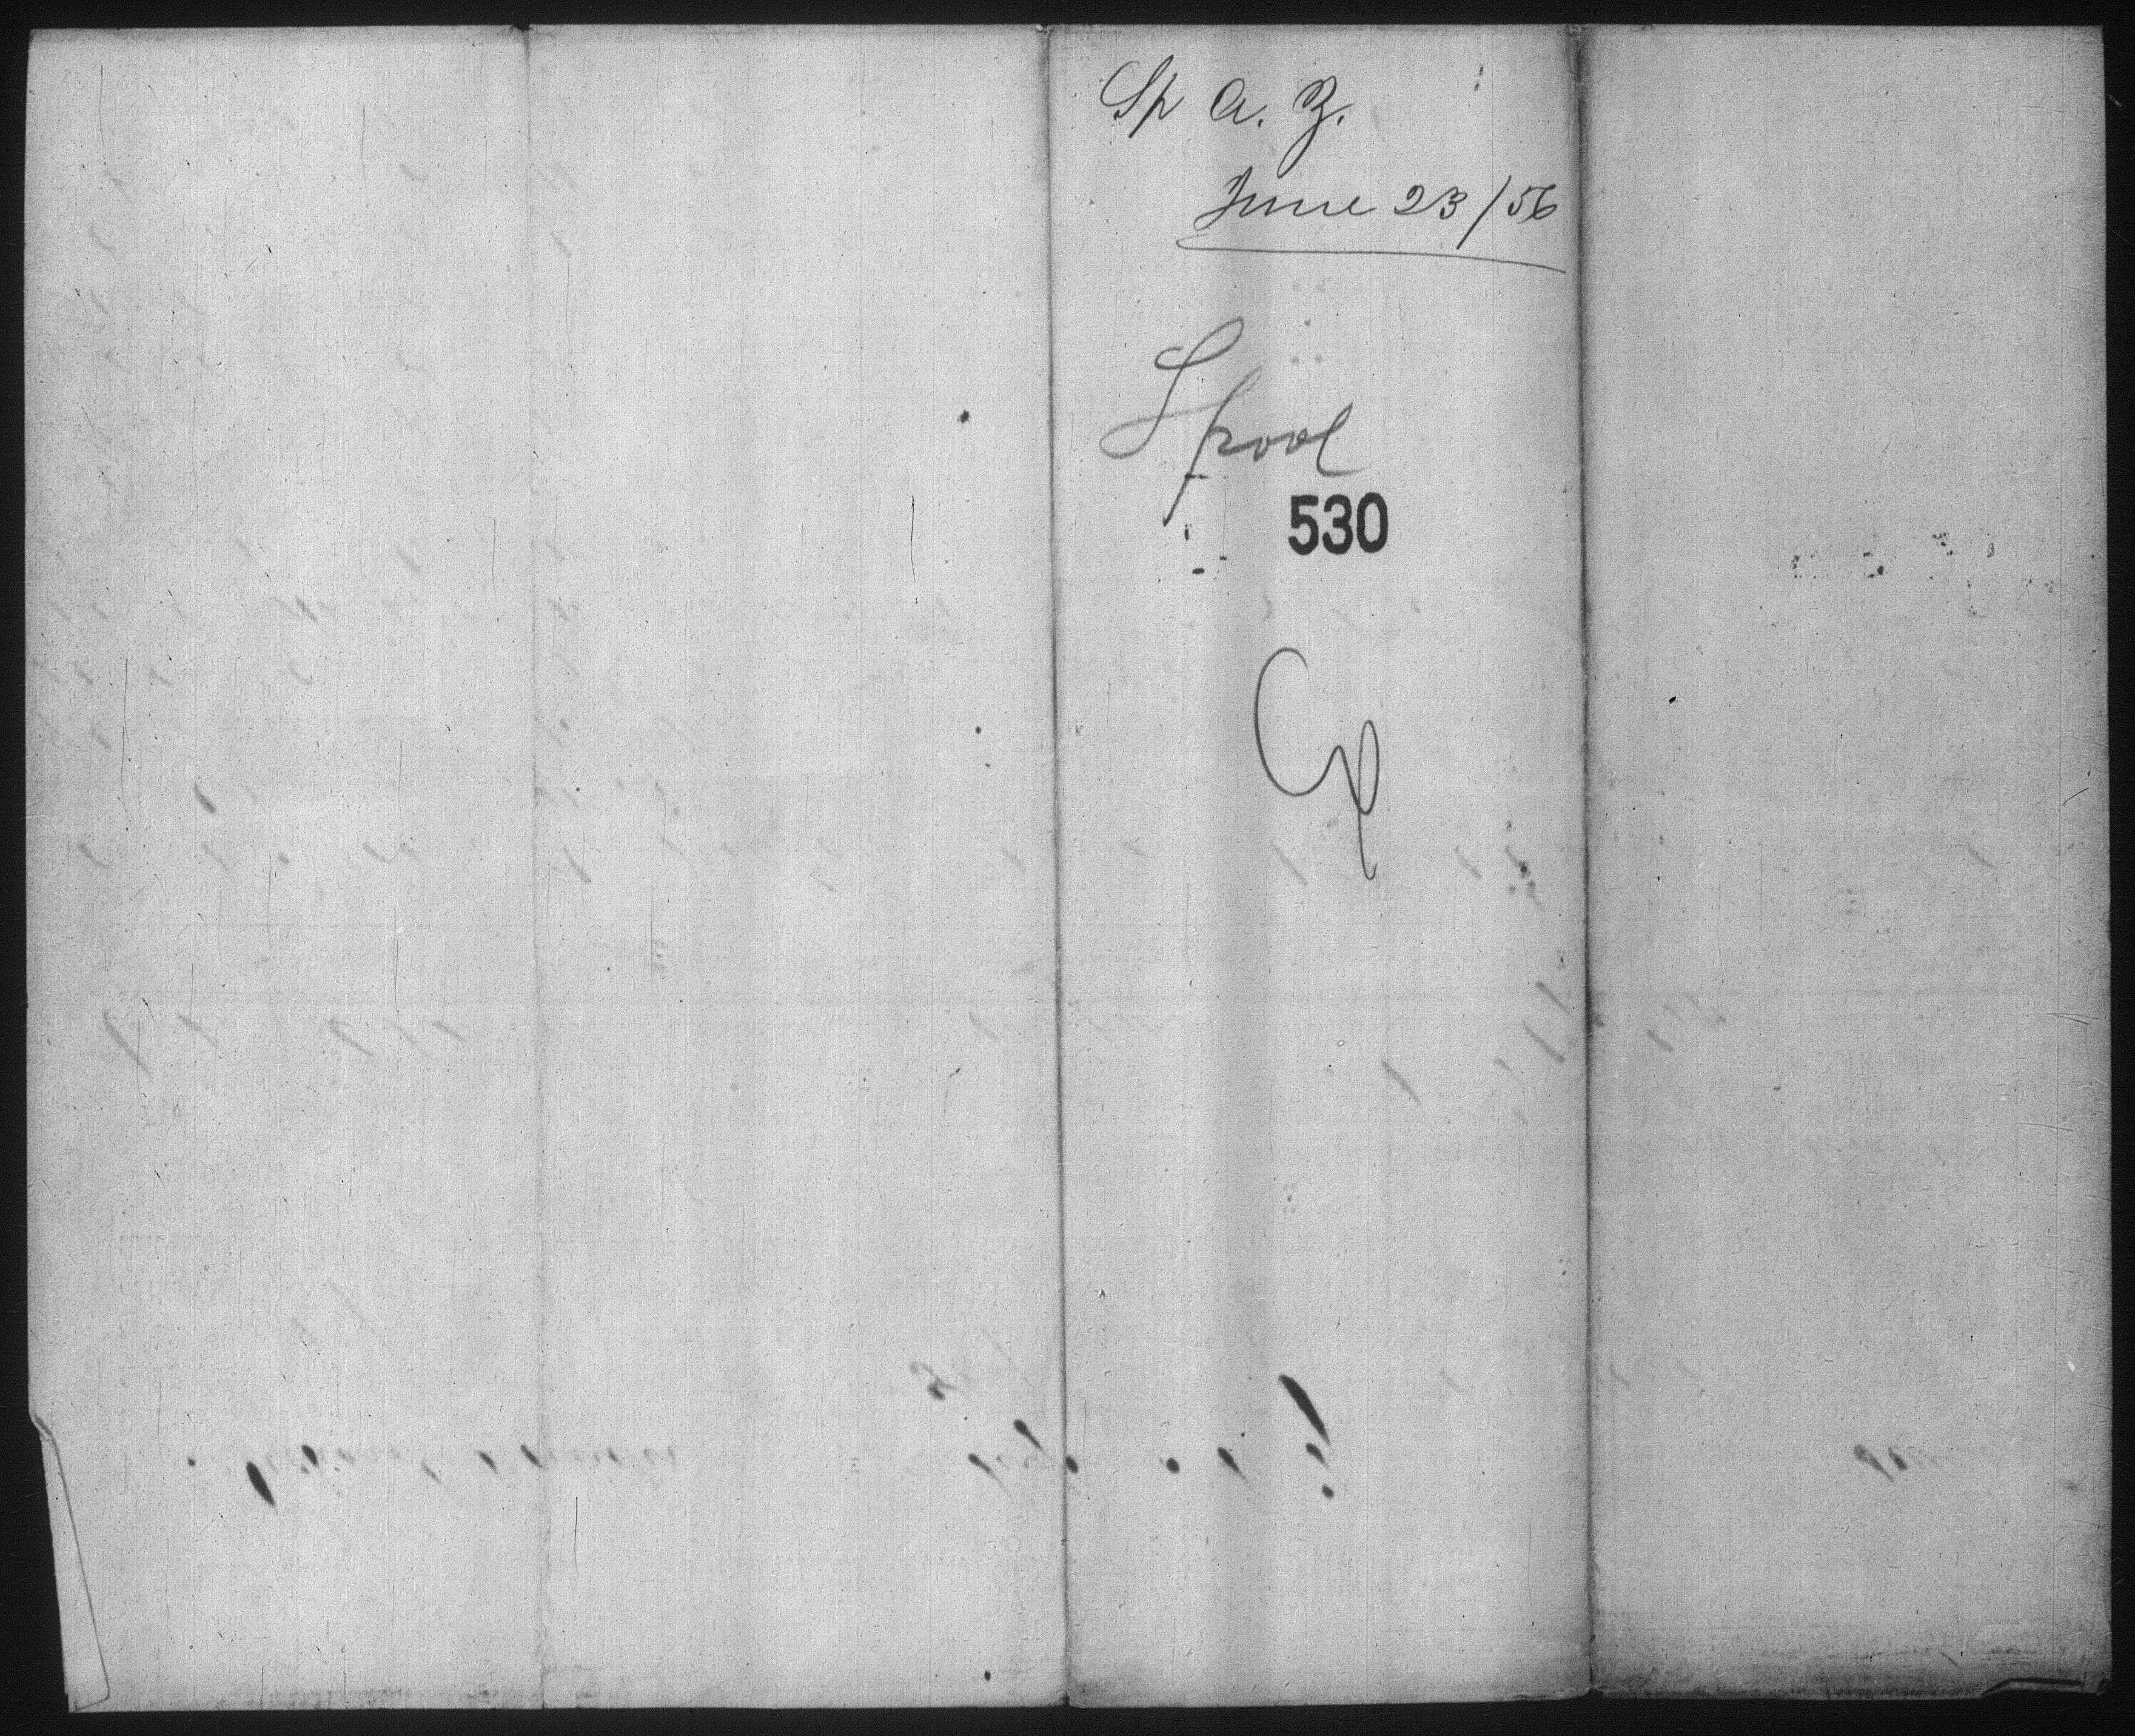 Sp A. Z.
June 23/56
Spool
530